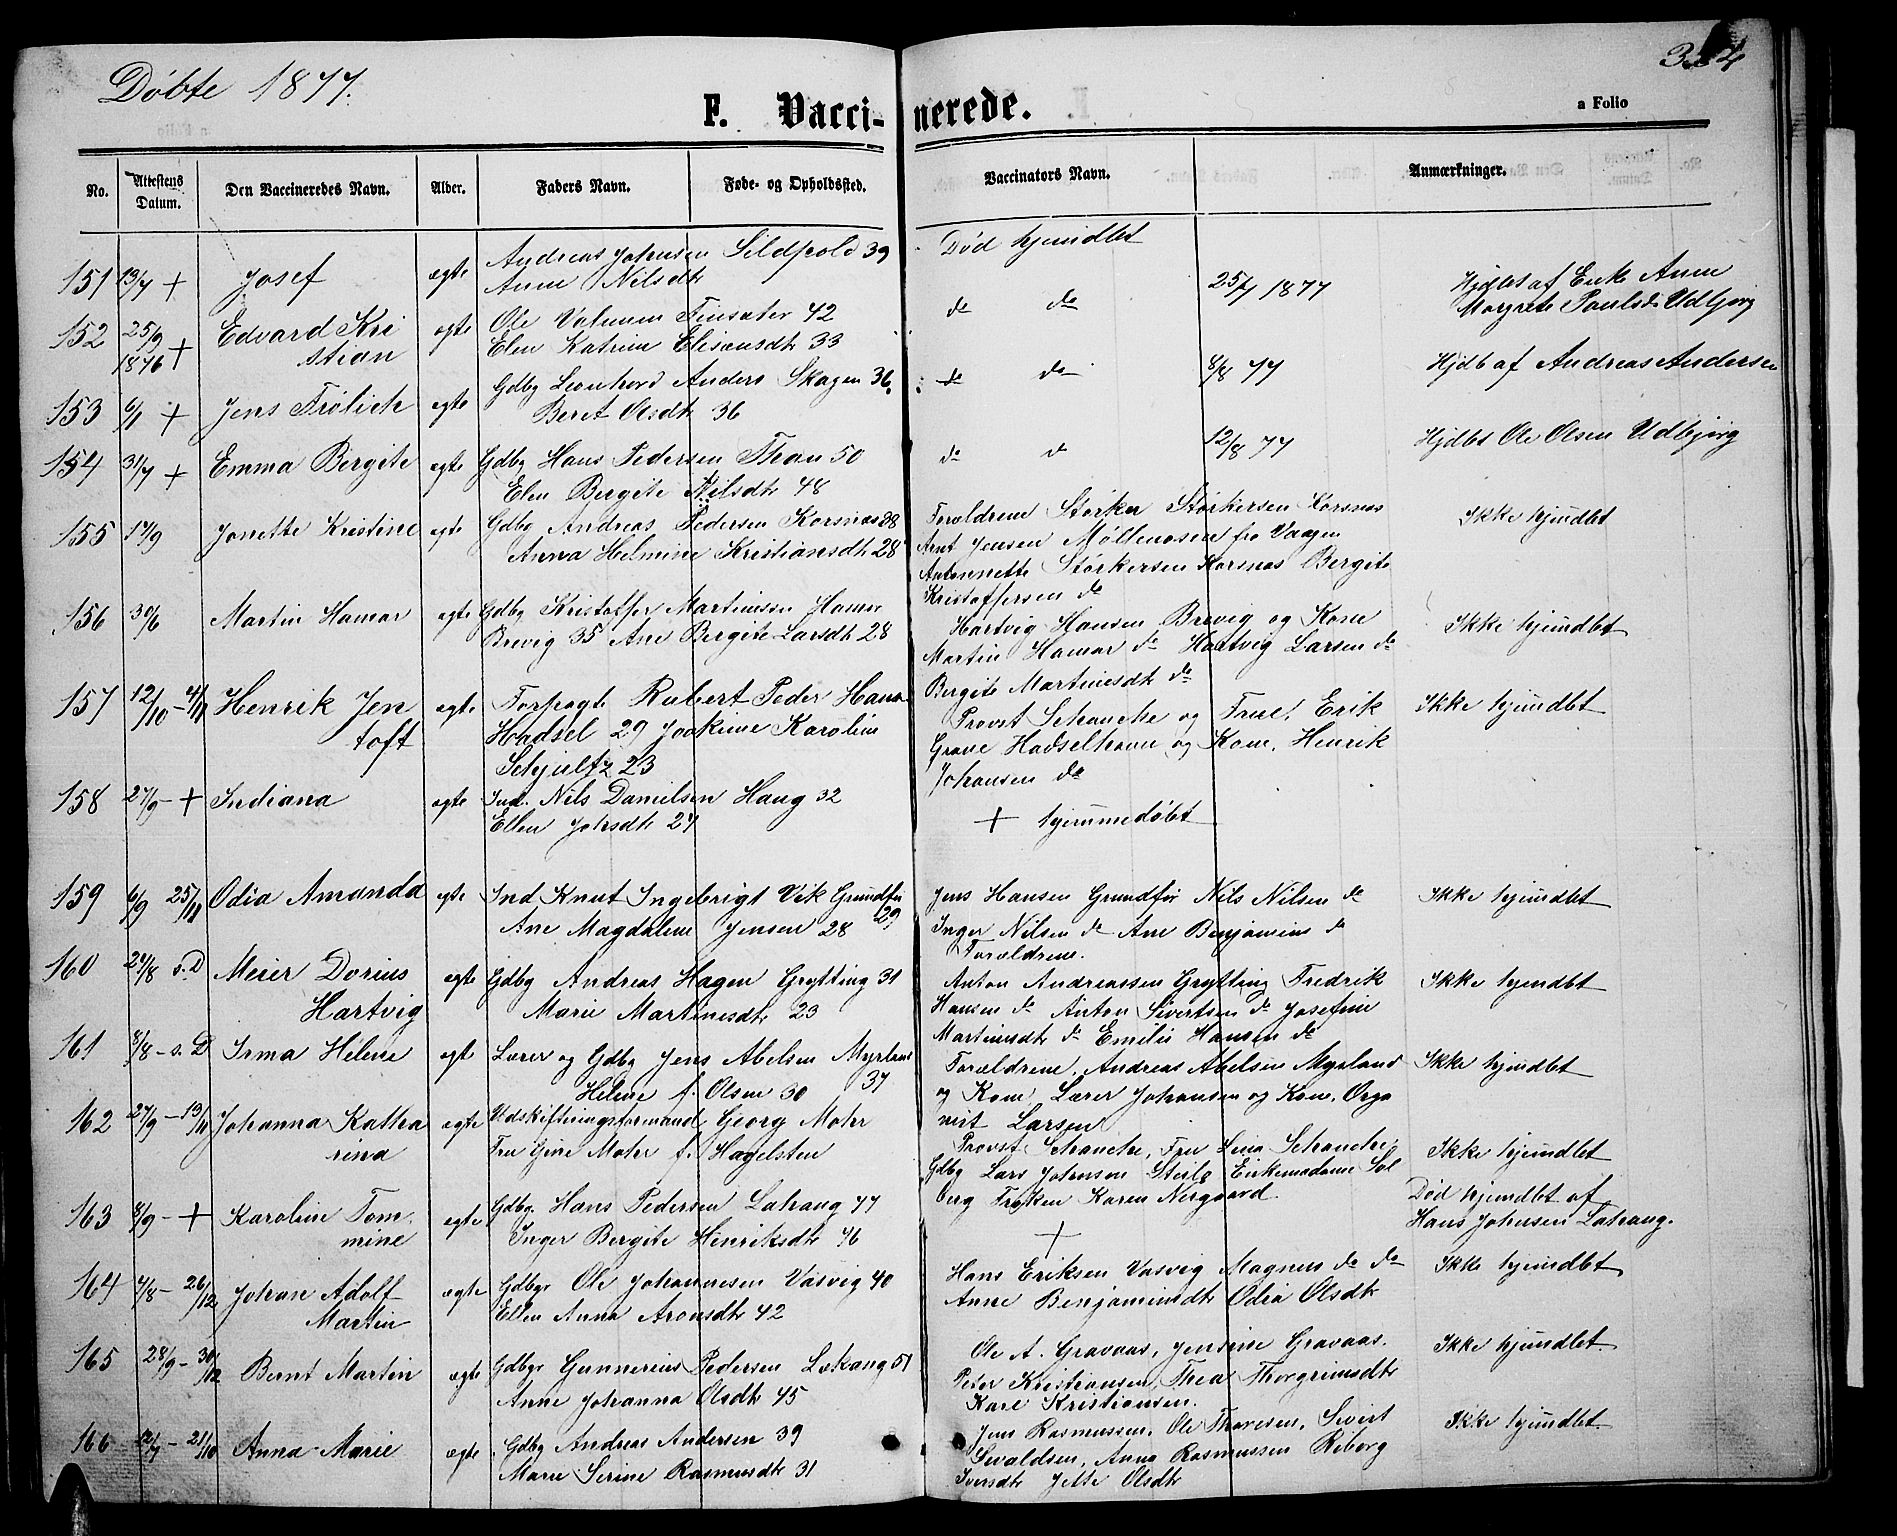 Døbte 1877.
334
F. Vaccinerede.
a Folio
No.
Attestens Datum.
Den Vaccineredes Navn.
Alder.
Faders Navn.
Føde- og Opholdssted.
Vaccinators Navn.
Anmærkninger.
151 13/7 + Josef ægte Andreas Johnsen Sildpold 39 Død hjemdbt
Anne Nilsdt 25/7 1877 Hjdbt af Enke Anne
152 25/9 + Edvard Kri ægte Ole Finsæter 42 do do Margrete Paulsdt Udbjörg
1876 stian Elen Katrine Elisæusdt 33
153 6/1 + Jens Frölich ægte Gdbg Leonhard Anders Skagen 36 do do 8/8 77 Hjdb af Andreas Andersen
Beret Olsdt 36
154 31/7 + Emma Bergite ægte Gdbg Hans Pedersen Than 50 do do 12/8 77 Hjdbt Ole Olsen Udbjörg
Elen Bergite Nilsdt 48
155 17/9 Jonette Kristine ægte Gdbg Andreas Pedersen Korsnæs 38 Forældrene Störker Störkersen Korsnæs Ikke hjemdbt
Anna Helmine Kristiansdt 28 Arnt Jensen Möllenosen fra Vaagen
Antonnette Störkersen Korsnæs Bergite
Kristoffersen do
156 30/6 Martin Hamar ægte Gdbg Kristoffer Martinssen Hamar Hartvig Hansen Brevig og Kone Ikke hjemdbt
Brevig 35 Ane Bergite Larsdt 28 Martin Hamar do Hartvig Larsen do
Bergite Martinesdt do
157 12/10 - 4/11 Henrik Jen ægte Forpagt Robert Peder Hansen Provst Schanche og Frue, Erik Ikke hjemdbt
toft Hadsel 29 Joakime Karoline Grave Hadselhavn og Kone, Henrik
Schjultz 23 Johansen do
158 27/9 - + Indiana ægte Ind. Nils Danielsen Haug 32 + hjemmedøbt
Ellen Johsdt 27
159 6/9 25/11 Odia Amanda ægte Ind Knut Ingebrigt Vik Grundfør 29 Jens Hansen Grundfør Nils Nilsen do Ikke hjemdbt
Ane Magdalene Jensen 28 Inger Nilsen do Ane Benjamins do
Forældrene.
160 24/8 s.D Meier Dorius ægte Gdbg Andreas Hagen Grytting 31 Anton Andreassen Grytting Fredrik Ikke hjemdbt
Hartvig Marie Martinesdt 23 Hansen do Anton Sivertsen do Josefine
Martinusdt do Emilie Hansen do
161 8/8 - s.D Irma Helene ægte Lærer og Gdbg Jens Abelsen Myrland 37 Forældrene, Andreas Abelsen Myrland Ikke hjemdbt
Helene f. Olsen 30 og Kone Lærer Johansen og Kone, Orga
nist Larsen
162 27/9 - 13/11 Johanna Katha ægte Udskiftningsformand Georg Mohr Provst Schanche, Fru Lina Schanche, Ikke hjemdbt
rina Fru Gine Mohr f. Hagelsten Gdbg Lars Johnson Steilo Enkemadame Sol
berg Frøken Karen Nergaard
163 8/9 - + Karoline Tom ægte Gdbg. Hans Pedersen Løhaug 47 + Død hjemdbt af
mine Inger Bergite Henriksdt 46 Hans Johnsen Løhaug.
164 7/8 - 26/12 Johan Adolf ægte Gdbgr Ole Johannesen Vasvig 40 Hans Eriksen Vasvig Magnus do do Ikke hjemdbt
Martin Ellen Anna Aronsdt 42 Anne Benjaminsdt Odia Olsdt
165 28/9 - 30/12 Bernt Martin ægte Gdbgr Gunnerius Pedersen Løkaug 51 Ole A. Gravaas, Jensine Gravaas. Ikke hjemdbt
Anne Johanna Olsdt 45 Peter Kristiansen, Thea Thorgrimsdt
Karl Kristiansen.
166 12/7 - 21/10 Anna Marie ægte Gdbg Andreas Andersen 39 Jens Rasmussen, Ole Thoresen, Sivert Ikke hjemdbt
Marie Serine Rasmusdt 31 Sivaldsen, Anna Rasmussen Riborg
Iversdt Jette Olsdt